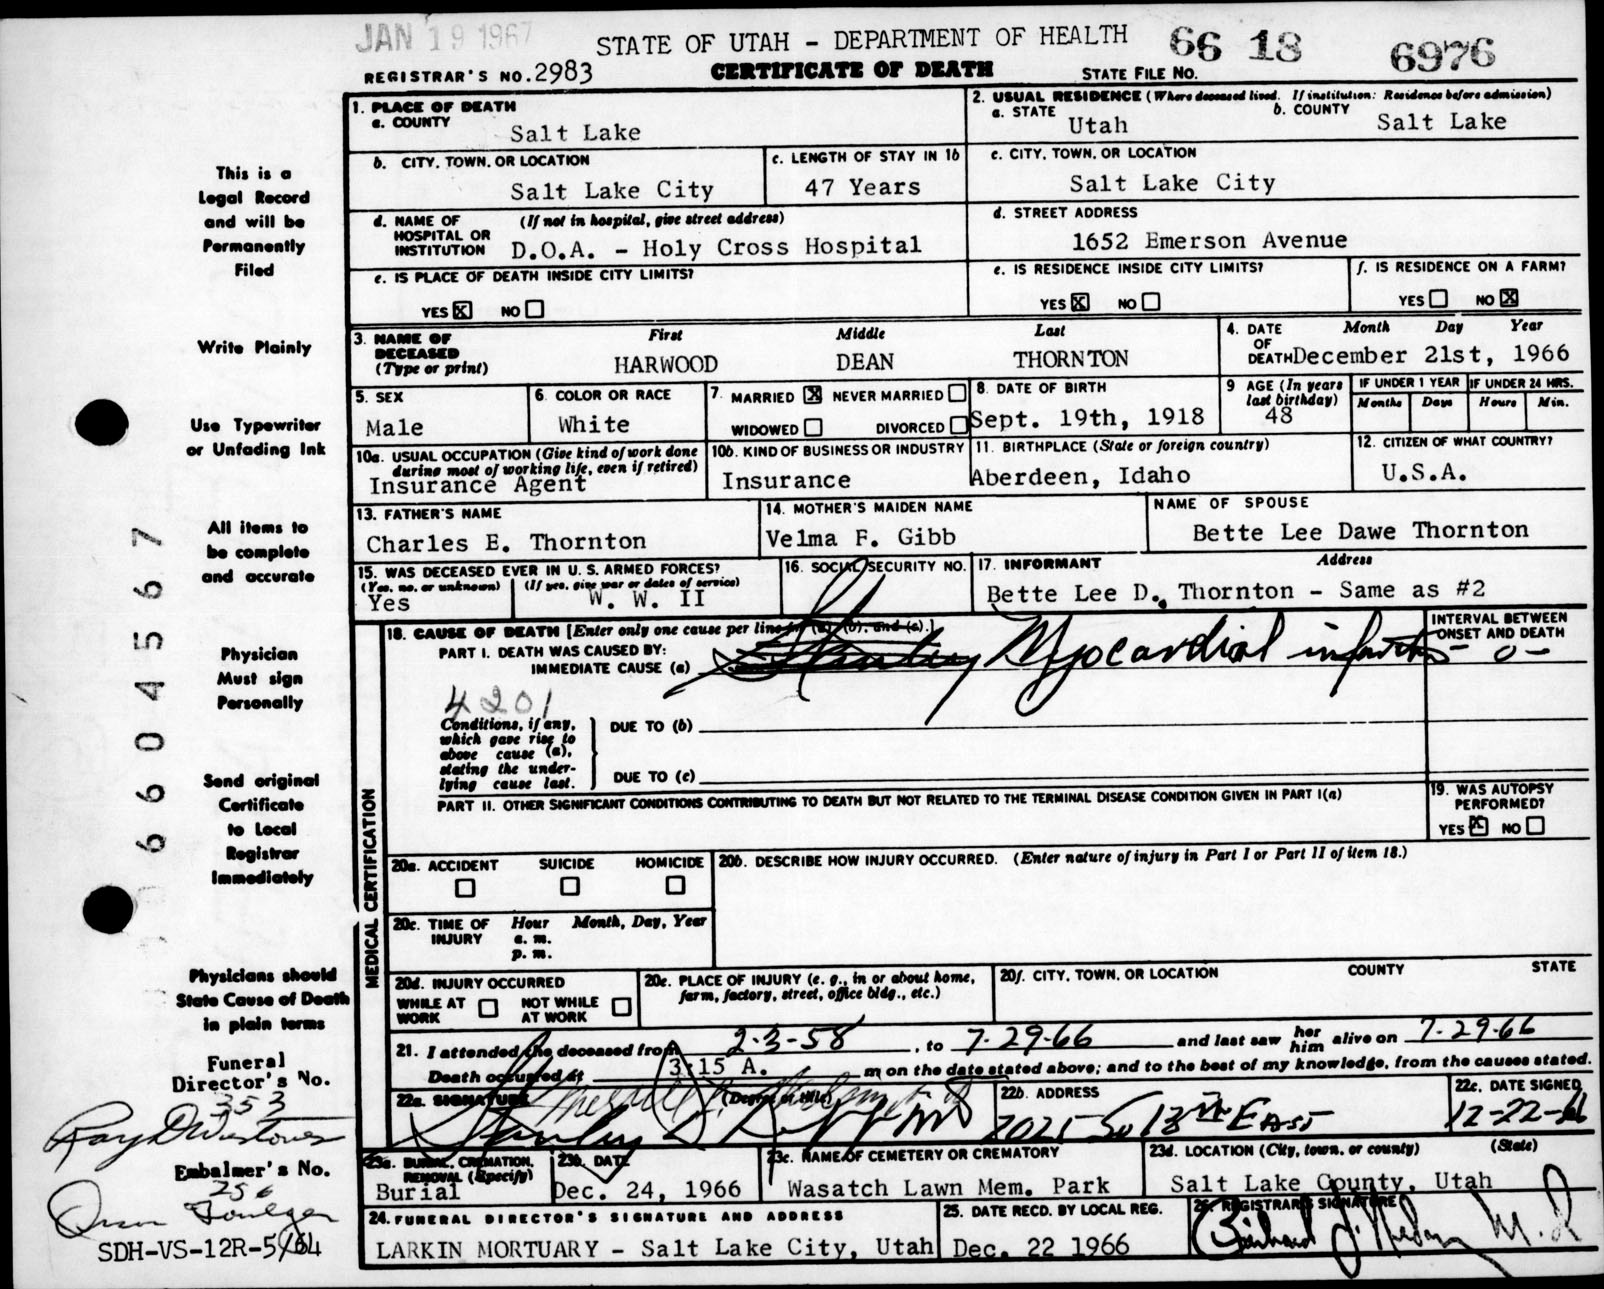 JAN 19 1967
STATE OF UTAH - DEPARTMENT OF HEALTH
66 18 6976
REGISTRAR'S NO. 2983
CERTIFICATE OF DEATH
STATE FILE NO.
1. PLACE OF DEATH
a. COUNTY
Salt Lake
2. USUAL RESIDENCE (Where deceased lived. If institution: Residence before admission)
a. STATE
Utah
b. COUNTY
Salt Lake
b. CITY, TOWN, OR LOCATION
Salt Lake City
c. LENGTH OF STAY IN 1b
47 Years
c. CITY, TOWN, OR LOCATION
Salt Lake City
d. NAME OF HOSPITAL OR INSTITUTION
(If not in hospital, give street address)
D.O.A. - Holy Cross Hospital
d. STREET ADDRESS
1652 Emerson Avenue
e. IS PLACE OF DEATH INSIDE CITY LIMITS?
YES X NO
e. IS RESIDENCE INSIDE CITY LIMITS?
YES X NO
f. IS RESIDENCE ON A FARM?
YES NO X
3. NAME OF DECEASED
(Type or print)
First Middle Last
HARWOOD DEAN THORNTON
4. DATE OF DEATH
Month Day Year
December 21st, 1966
5. SEX
Male
6. COLOR OR RACE
White
7. MARRIED X NEVER MARRIED
WIDOWED DIVORCED
8. DATE OF BIRTH
Sept. 19th, 1918
9 AGE (In years last birthday)
48
IF UNDER 1 YEAR
Months Days
IF UNDER 24 HRS.
Hours Min.
10a. USUAL OCCUPATION (Give kind of work done during most of working life, even if retired)
Insurance Agent
10b. KIND OF BUSINESS OR INDUSTRY
Insurance
11. BIRTHPLACE (State or foreign country)
Aberdeen, Idaho
12. CITIZEN OF WHAT COUNTRY?
U.S.A.
13. FATHER'S NAME
Charles E. Thornton
14. MOTHER'S MAIDEN NAME
Velma F. Gibb
NAME OF SPOUSE
Bette Lee Dawe Thornton
15. WAS DECEASED EVER IN U. S. ARMED FORCES?
(Yes, no, or unknown) (If yes, give war or dates of service)
Yes W. W. II
16. SOCIAL SECURITY NO.
17. INFORMANT Address
Bette Lee D. Thornton - Same as #2
MEDICAL CERTIFICATION
18. CAUSE OF DEATH [Enter only one cause per line for (a), (b), and (c).]
PART I. DEATH WAS CAUSED BY:
IMMEDIATE CAUSE (a)
Stanley Myocardial infarction
INTERVAL BETWEEN ONSET AND DEATH
- 0 -
4201
Conditions, if any,
which gave rise to
above cause (a),
stating the under-
lying cause last.
DUE TO (b)
DUE TO (c)
PART II. OTHER SIGNIFICANT CONDITIONS CONTRIBUTING TO DEATH BUT NOT RELATED TO THE TERMINAL DISEASE CONDITION GIVEN IN PART I(a)
19. WAS AUTOPSY PERFORMED?
YES X NO
20a. ACCIDENT SUICIDE HOMICIDE
20b. DESCRIBE HOW INJURY OCCURRED. (Enter nature of injury in Part I or Part II of item 18.)
20c. TIME OF INJURY
Hour Month, Day, Year
a. m.
p. m.
20d. INJURY OCCURRED
WHILE AT WORK NOT WHILE AT WORK
20e. PLACE OF INJURY (e. g., in or about home, farm, factory, street, office bldg., etc.)
20f. CITY, TOWN, OR LOCATION COUNTY STATE
21. I attended the deceased from 2-3-58, to 7-29-66 and last saw her him alive on 7-29-66
Death occurred at 3:15 A. m on the date stated above; and to the best of my knowledge, from the causes stated.
22a. SIGNATURE (Degree or title)
Stanley
22b. ADDRESS
2025 So 13th East
22c. DATE SIGNED
12-22-66
23a. BURIAL, CREMATION, REMOVAL (Specify)
Burial
23b. DATE
Dec. 24, 1966
23c. NAME OF CEMETERY OR CREMATORY
Wasatch Lawn Mem. Park
23d. LOCATION (City, town, or county) (State)
Salt Lake County, Utah
24. FUNERAL DIRECTOR'S SIGNATURE AND ADDRESS
LARKIN MORTUARY - Salt Lake City, Utah
25. DATE RECD. BY LOCAL REG.
Dec. 22 1966
26. REGISTRAR'S SIGNATURE
M.D
This is a
Legal Record
and will be
Permanently
Filed
Write Plainly
Use Typewriter
or Unfading Ink
All items to
be complete
and accurate
Physician
Must sign
Personally
Send original
Certificate
to Local
Registrar
Immediately
Physicians should
State Cause of Death
in plain terms
Funeral
Director's No.
353
Embalmer's No.
256
SDH-VS-12R-5/64
6604567